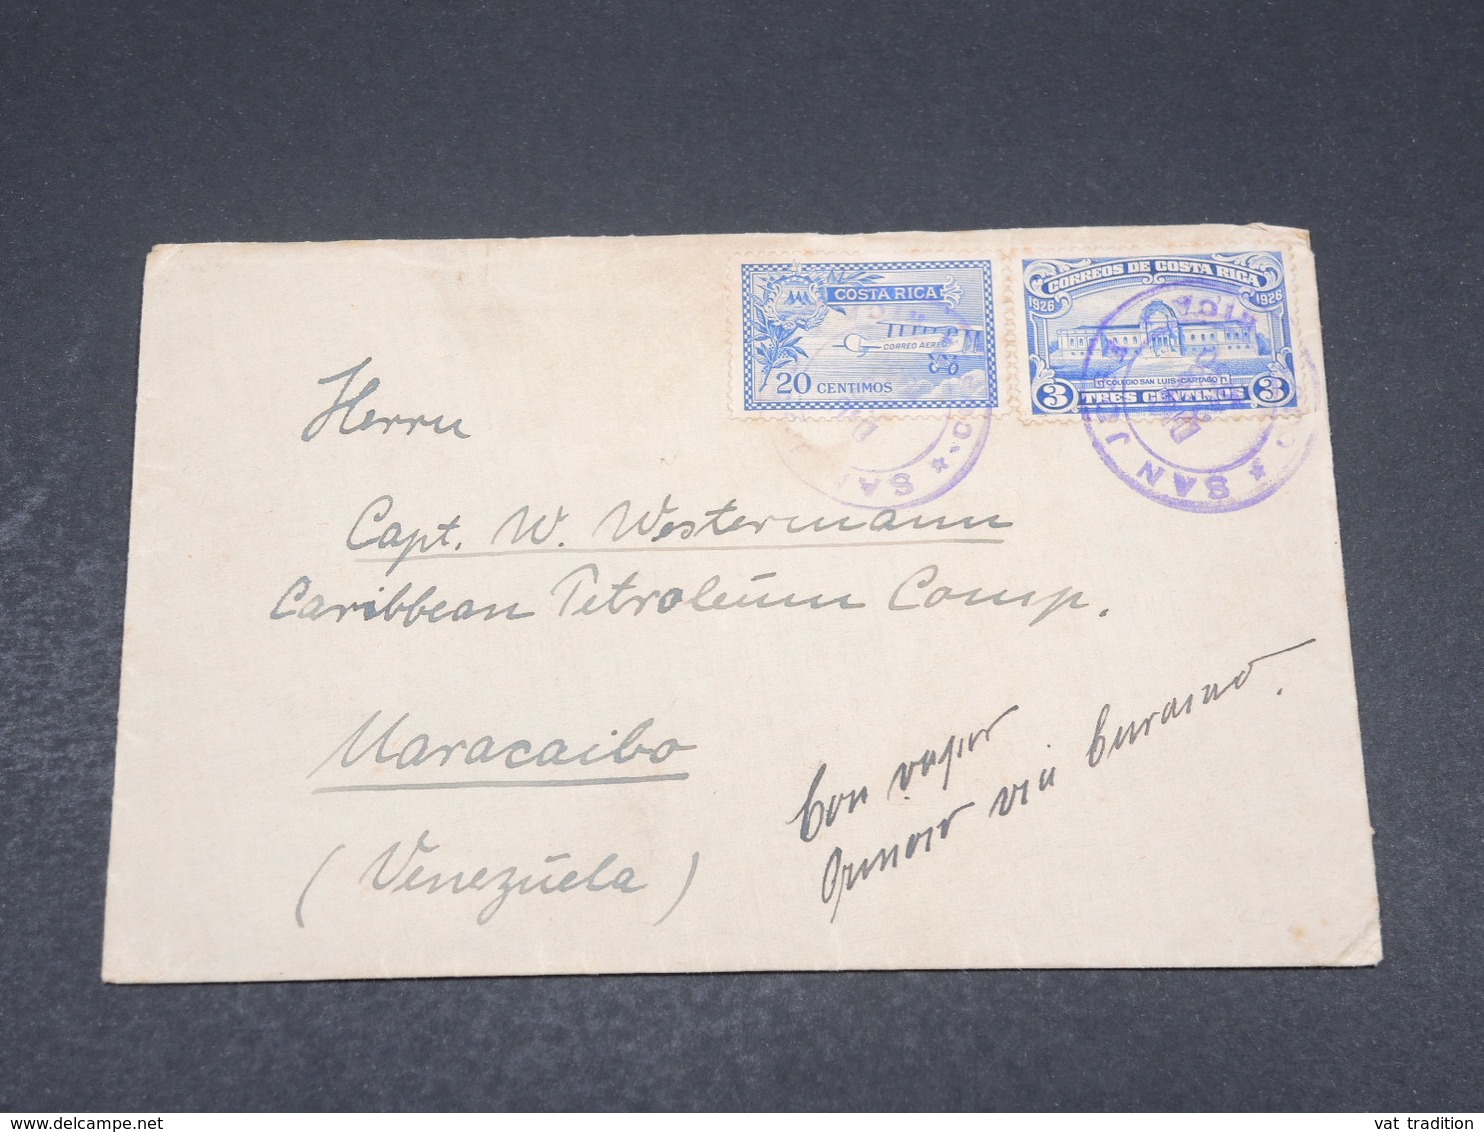 COSTA RICA
CORREO AEREO
20 CENTIMOS
CORREOS DE COSTA RICA
1926 1926
COLEGIO SAN LUIS-CARTAGO
3 TRES CENTIMOS 3
SAN JOSE
Herrn
Capt. W. Westermann
Caribbean Petroleum Comp.
Maracaibo
(Venezuela)
Con vapor
via Curacao.
vat tradition
delcampe.net